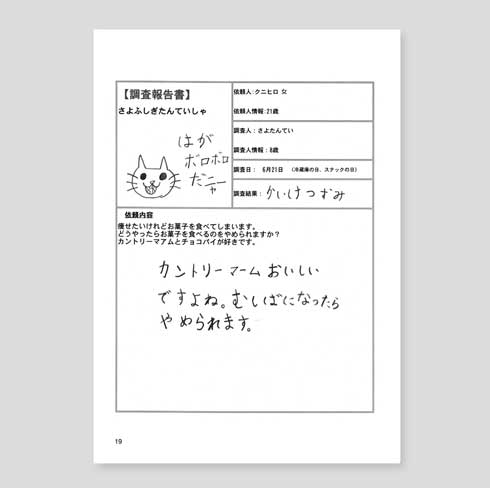 【調査報告書】
さよふしぎたんていしゃ
はが
ボロボロ
だニャー
依頼人:クニヒロ 女
依頼人情報:21歳
調査人:さよたんてい
調査人情報:8歳
調査日: 6月21日 (冷蔵庫の日、スナックの日)
調査結果:かいけつずみ
依頼内容
痩せたいけれどお菓子を食べてしまいます。
どうやったらお菓子を食べるのをやめられますか?
カントリーマアムとチョコパイが好きです。
カントリーマームおいしい
ですよね。むしばになったら
やめられます。
19